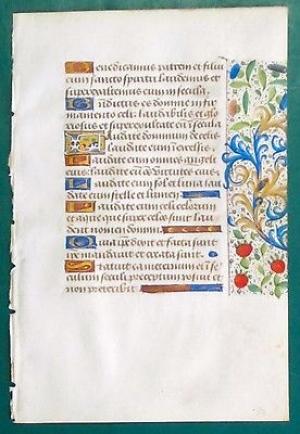 Benedicamus patrem et filiu
cum sancto spiritu laudemus et
superexaltemus eum in secula
Benedictus es domine in fir
mamento celi et laudabilis et glo
riosus et superexaltatus in secula
Laudate dominum de celis
laudate eum in excelsis
Laudate eum omnes angeli
eius laudate eum oes virtutes eius
Laudate eum sol et luna lau
date eum stelle et lumen
Laudate eum celi celorum
et aque que super celos sunt lau
dent nomen domini
Quia ipse dixit et facta sunt
ipse mandavit et creata sunt
Statuit ea in eternum et in se
culum seculi preceptum posuit et
non preteribit